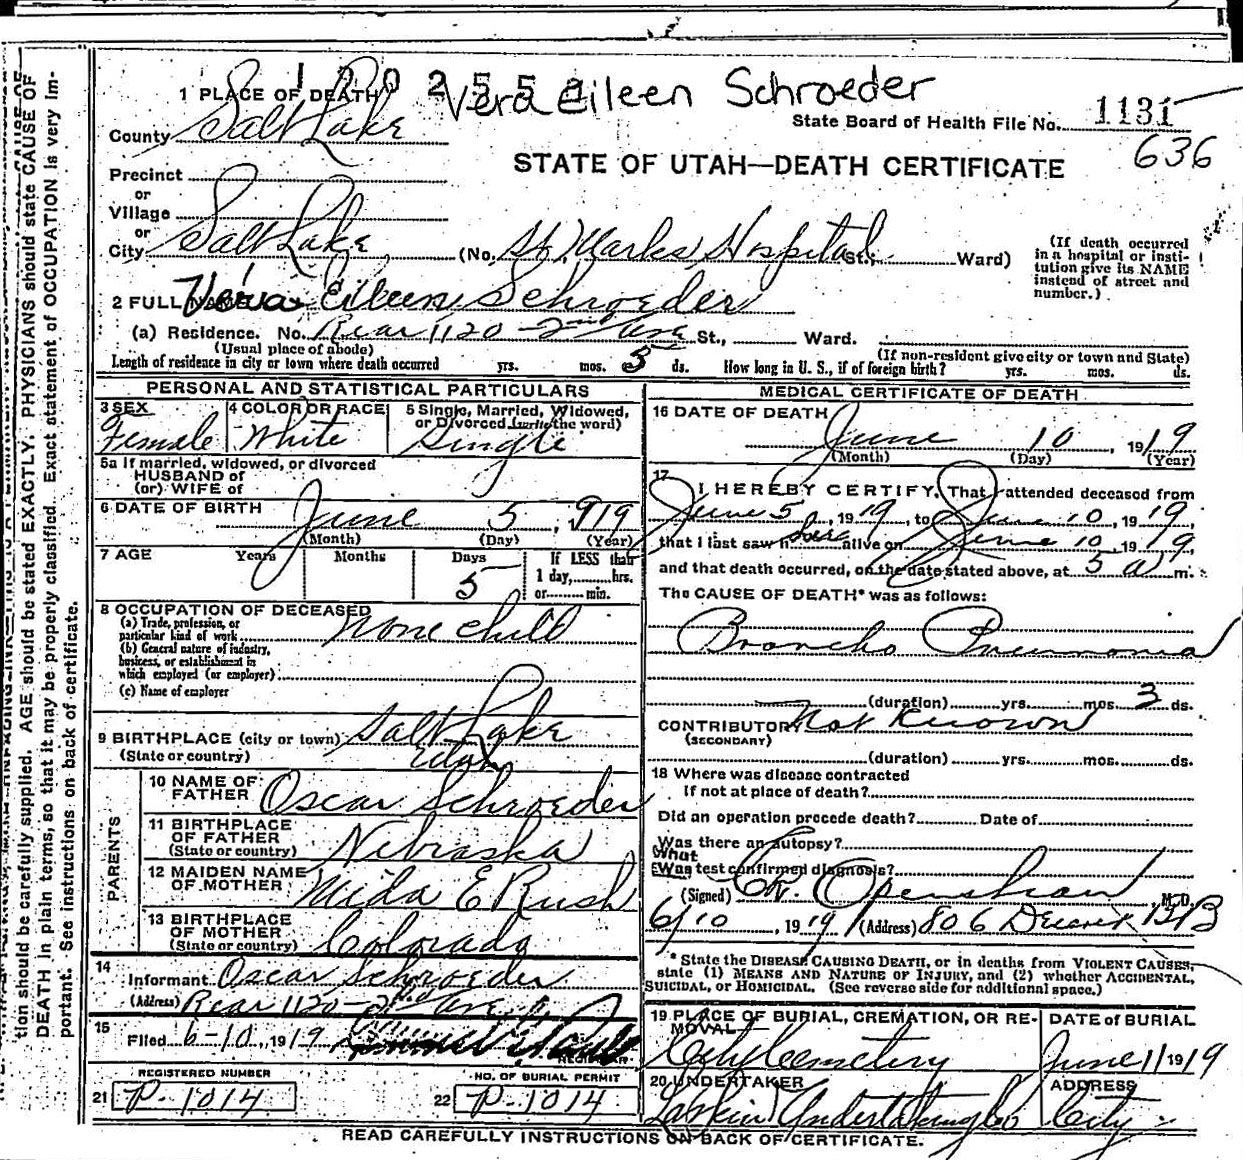 1 0 0 2 5 5
Vera Eileen Schroeder
1 PLACE OF DEATH
County Salt Lake
State Board of Health File No. 1131
636
STATE OF UTAH—DEATH CERTIFICATE
Precinct
or
Village
or
City Salt Lake (No. St. Marks Hospital St., Ward)
(If death occurred in a hospital or institution give its NAME instead of street and number.)
2 FULL NAME Vera Eileen Schroeder
(a) Residence. No. Rear 1120 - 2nd Ave St., Ward.
(Usual place of abode) (If non-resident give city or town and State)
Length of residence in city or town where death occurred yrs. mos. 5 ds. How long in U. S., if of foreign birth? yrs. mos. ds.
PERSONAL AND STATISTICAL PARTICULARS
3 SEX Female
4 COLOR OR RACE White
5 Single, Married, Widowed, or Divorced (write the word) Single
5a If married, widowed, or divorced
HUSBAND of
(or) WIFE of
6 DATE OF BIRTH June 5, 919
(Month) (Day) (Year)
7 AGE Years Months Days 5 If LESS than 1 day, hrs. or min.
8 OCCUPATION OF DECEASED
(a) Trade, profession, or particular kind of work None child
(b) General nature of industry, business, or establishment in which employed (or employer)
(c) Name of employer
9 BIRTHPLACE (city or town) Salt Lake
(State or country) Utah
PARENTS
10 NAME OF FATHER Oscar Schroeder
11 BIRTHPLACE OF FATHER (State or country) Nebraska
12 MAIDEN NAME OF MOTHER Mida E Rush
13 BIRTHPLACE OF MOTHER (State or country) Colorado
14 Informant Oscar Schroeder
(Address) Rear 1120 - 2nd Ave
15 Filed 6-10, 1919
REGISTRAR
REGISTERED NUMBER
21 P-1014
NO. OF BURIAL PERMIT
22 P-1014
MEDICAL CERTIFICATE OF DEATH
16 DATE OF DEATH
June 10 1919
(Month) (Day) (Year)
17 I HEREBY CERTIFY, That I attended deceased from
June 5, 1919, to June 10, 1919,
that I last saw her alive on June 10, 1919,
and that death occurred, on the date stated above, at 5 a m.
The CAUSE OF DEATH* was as follows:
Broncho Pneumonia
(duration) yrs. mos. 3 ds.
CONTRIBUTORY Not Known
(SECONDARY)
(duration) yrs. mos. ds.
18 Where was disease contracted
If not at place of death?
Did an operation precede death? Date of
Was there an autopsy?
What test confirmed diagnosis?
(Signed) Openshaw M.D.
6/10, 1919 (Address) 806 Deseret
* State the DISEASE CAUSING DEATH, or in deaths from VIOLENT CAUSES, state (1) MEANS AND NATURE OF INJURY, and (2) whether ACCIDENTAL, SUICIDAL, or HOMICIDAL. (See reverse side for additional space.)
19 PLACE OF BURIAL, CREMATION, OR REMOVAL City Cemetery
DATE of BURIAL June 11 1919
20 UNDERTAKER Larkin Undertaking Co
ADDRESS City
READ CAREFULLY INSTRUCTIONS ON BACK OF CERTIFICATE.
tion should be carefully supplied. AGE should be stated EXACTLY. PHYSICIANS should state CAUSE OF
DEATH in plain terms, so that it may be properly classified. Exact statement of OCCUPATION is very im-
portant. See instructions on back of certificate.